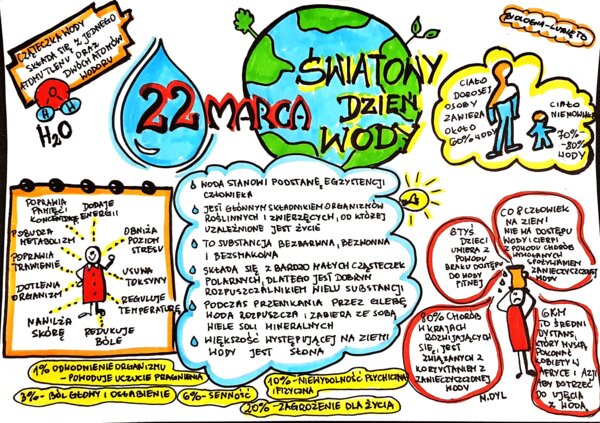 CZĄSTECZKA WODY
SKŁADA SIĘ Z JEDNEGO
ATOMU TLENU ORAZ
DWÓCH ATOMÓW
WODORU
H2O
22 MARCA
ŚWIATOWY
DZIEŃ
WODY
BIOLOGIA-LUBIĘ TO
CIAŁO
DOROSŁEJ
OSOBY
ZAWIERA
OKOŁO
60% WODY
CIAŁO
NIEMOWLĄ
70%
-80%
WODY
POPRAWIA
PAMIĘĆ I
KONCENTRACJĘ
DODAJE
ENERGII
POBUDZA
METABOLIZM
OBNIŻA
POZIOM
STRESU
POPRAWIA
TRAWIENIE
USUWA
TOKSYNY
DOTLENIA
ORGANIZM
REGULUJE
TEMPERATURĘ
NAWILŻA
SKÓRĘ
REDUKUJE
BÓLE
WODA STANOWI PODSTAWĘ EGZYSTENCJI
CZŁOWIEKA
JEST GŁÓWNYM SKŁADNIKIEM ORGANIZMÓW
ROŚLINNYCH I ZWIERZĘCYCH, OD KTÓREJ
UZALEŻNIONE JEST ŻYCIE
TO SUBSTANCJA BEZBARWNA, BEZWONNA
I BEZSMAKOWA
SKŁADA SIĘ Z BARDZO MAŁYCH CZĄSTECZEK
POLARNYCH, DLATEGO JEST DOBRYM
ROZPUSZCZALNIKIEM WIELU SUBSTANCJI
PODCZAS PRZENIKANIA PRZEZ GLEBĘ
WODA ROZPUSZCZA I ZABIERA ZE SOBĄ
WIELE SOLI MINERALNYCH
WIĘKSZOŚĆ WYSTĘPUJĄCEJ NA ZIEMI
WODY JEST SŁONA
6 TYŚ
DZIECI
UMIERA Z
POWODU
BRAKU DOSTĘPU
DO WODY
PITNEJ
CO 8 CZŁOWIEK
NA ZIEMI
NIE MA DOSTĘPU
WODY I CIERPI
Z POWODU CHORÓB
WYWOŁANYCH
SPOŻYWANIEM
ZANIECZYSZCZONEJ
WODY
80% CHORÓB
W KRAJACH
ROZWIJAJĄCYCH
SIĘ, JEST
ZWIĄZANYCH Z
KORZYSTANIEM Z
ZANIECZYSZCZONEJ
WODY
6 KM
TO ŚREDNI
DYSTANS,
KTÓRY MUSZĄ
POKONAĆ
KOBIETY W
AFRYCE I AZJI
ABY DOTRZEĆ
DO UJĘCIA
Z WODĄ
N.DYL
1% ODWODNIENIE ORGANIZMU
- POWODUJE UCZUCIE PRAGNIENIA
3%- BÓL GŁOWY I OSŁABIENIE
6%- SENNOŚĆ
10%- NIEWYDOLNOŚĆ PSYCHICZNA
I FIZYCZNA
20%- ZAGROŻENIE DLA ŻYCIA